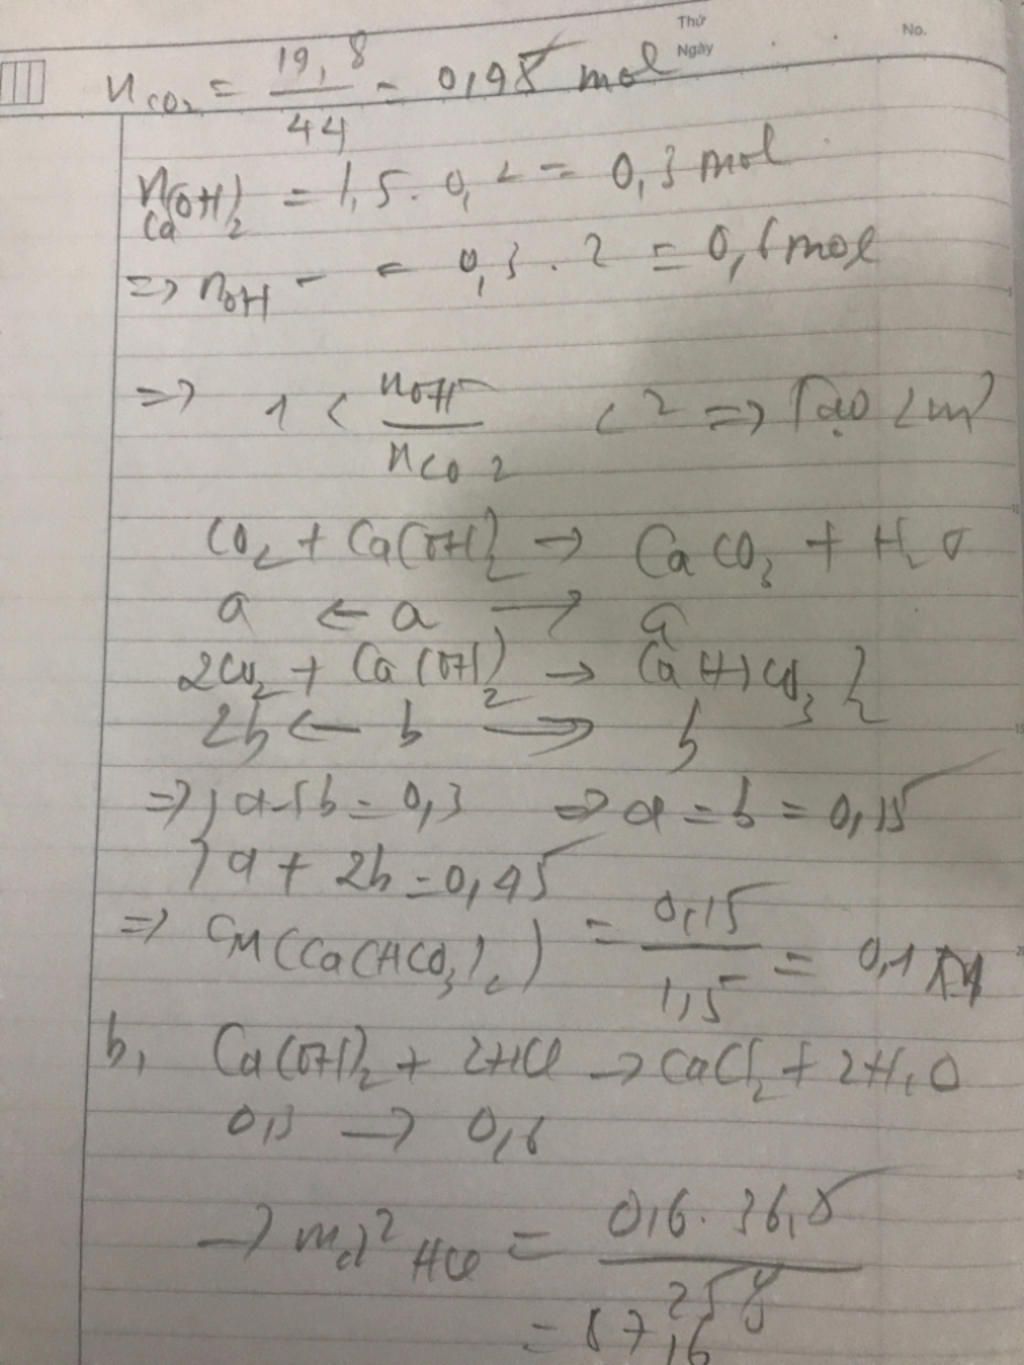 Thứ
Ngày
No.
n CO2 = 19,8 / 44 = 0,45 mol
n Ca(OH)2 = 1,5 . 0,2 = 0,3 mol
=> nOH- = 0,3 . 2 = 0,6 mol
=> 1 < nOH- / nCO2 < 2 => Tạo 2 m'
CO2 + Ca(OH)2 -> CaCO3 + H2O
a <- a -> a
2CO2 + Ca(OH)2 -> Ca(HCO3)2
2b <- b -> b
=> { a + b = 0,3 => a = b = 0,15
{ a + 2b = 0,45
=> CM(Ca(HCO3)2) = 0,15 / 1,5 = 0,1 M
b, Ca(OH)2 + 2HCl -> CaCl2 + 2H2O
0,3 -> 0,6
-> md2 HCl = 0,6 . 36,5 / 25%
= 87,6